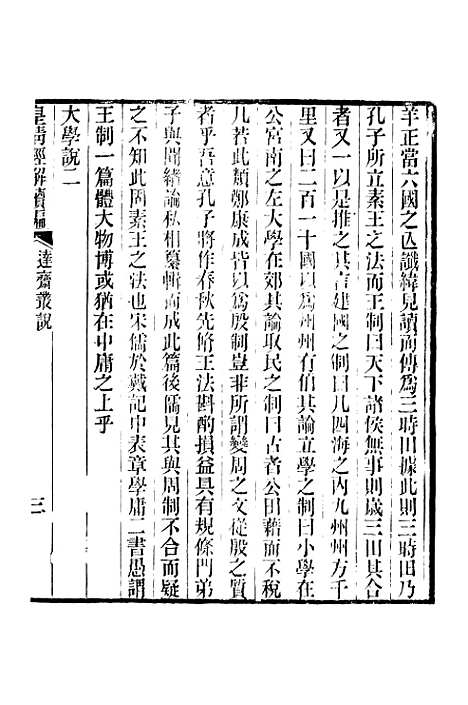 羊正當六國之亾讖緯見讀而傳爲三時田據此則三時田乃
孔子所立素王之法而王制曰天下諸侯無事則歲三田其合
者又一以是推之其言建國之制曰凡四海之內九州州方千
里又曰二百一十國以爲州州有伯其論立學之制曰小學在
公宮南之左大學在郊其論取民之制曰古者公田藉而不稅
凡若此類鄭康成皆以爲殷制豈非所謂變周之文從殷之質
者乎吾意孔子將作春秋先脩王法斟酌損益具有規條門弟
子與聞緒論私相纂輯而成此篇後儒見其與周制不合而疑
之不知此固素王之法也宋儒於戴記中表章學庸二書愚謂
王制一篇體大物博或猶在中庸之上乎
大學說二
皇淸經解續編
達齋叢說
三